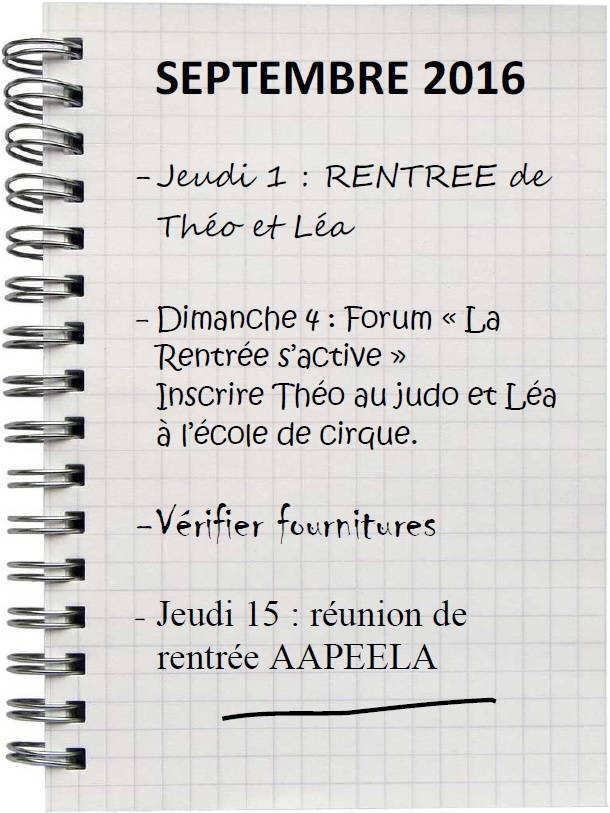 SEPTEMBRE 2016
- Jeudi 1 : RENTREE de
Théo et Léa
- Dimanche 4 : Forum « La
Rentrée s'active »
Inscrire Théo au judo et Léa
à l'école de cirque.
-Vérifier fournitures
- Jeudi 15 : réunion de
rentrée AAPEELA